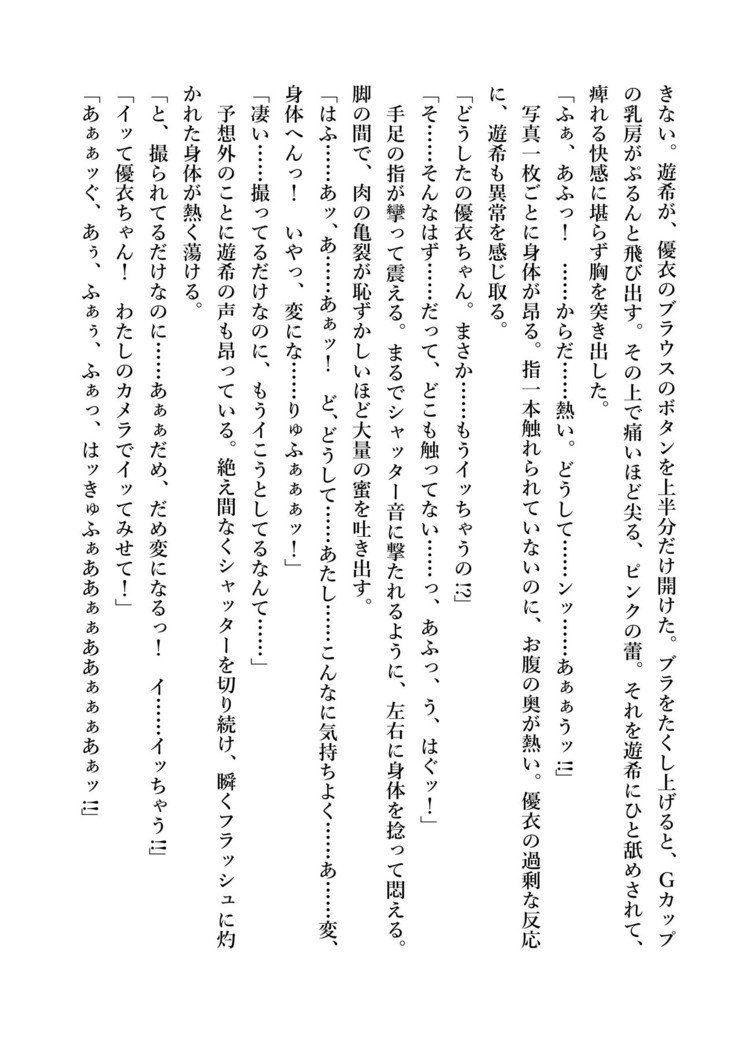 きない。遊希が、優衣のブラウスのボタンを上半分だけ開けた。ブラをたくし上げると、Gカップ
の乳房がぷるんと飛び出す。その上で痛いほど尖る、ピンクの蕾。それを遊希にひと舐めされて、
痺れる快感に堪らず胸を突き出した。
「ふぁ、あふっ！　……からだ……熱い。どうして……ンッ……あぁぅッ!!」
　写真一枚ごとに身体が昂る。指一本触れられていないのに、お腹の奥が熱い。優衣の過剰な反応
に、遊希も異常を感じ取る。
「どうしたの優衣ちゃん。まさか……もうイッちゃうの!?」
「そ……そんなはず……だって、どこも触ってない……っ、あふっ、う、はぐッ！」
　手足の指が攣って震える。まるでシャッター音に撃たれるように、左右に身体を捻って悶える。
脚の間で、肉の亀裂が恥ずかしいほど大量の蜜を吐き出す。
「はふ……あッ、あ……あぁッ！　ど、どうして……あたし……こんなに気持ちよく……あ……変、
身体へんっ！　いやっ、変にな……りゅふぁぁぁッ！」
「凄い……撮ってるだけなのに、もうイこうとしてるなんて……」
　予想外のことに遊希の声も昂っている。絶え間なくシャッターを切り続け、瞬くフラッシュに灼
かれた身体が熱く蕩ける。
「と、撮られてるだけなのに……あぁぁだめ、だめ変になるっ！　イ……イッちゃう!!」
「イッて優衣ちゃん！　わたしのカメラでイッてみせて！」
「あぁぁッぐ、あぅ、ふぁぅ、ふぁっ、はッきゅふぁああぁぁああぁぁぁあぁッ!!」